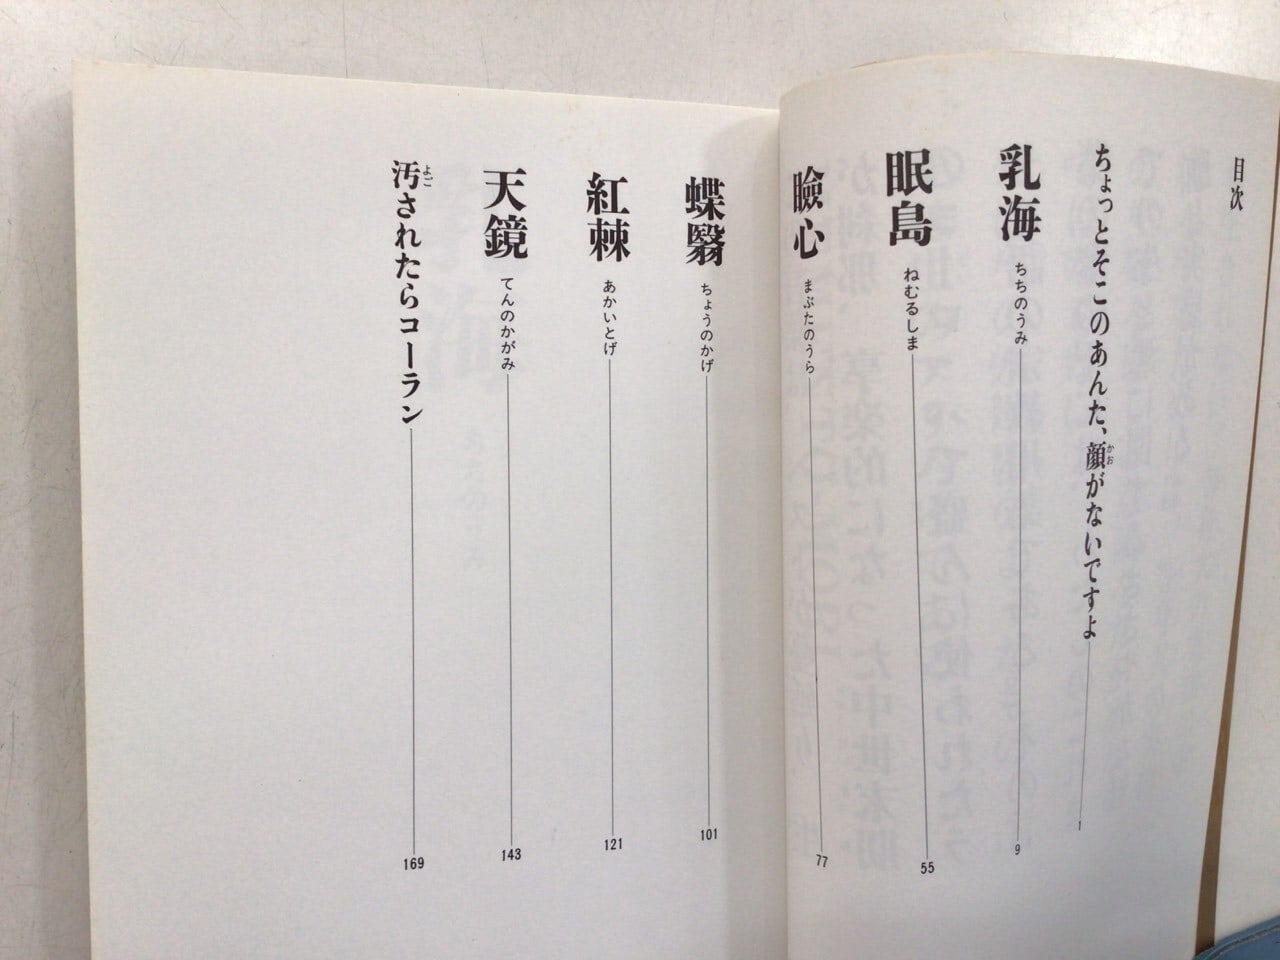 目次
ちょっとそこのあんた、顔がないですよ 1
乳海 ちちのうみ 9
眠島 ねむるしま 55
瞼心 まぶたのうら 77
蝶翳 ちょうのかげ 101
紅棘 あかいとげ 121
天鏡 てんのかがみ 143
汚されたらコーラン 169